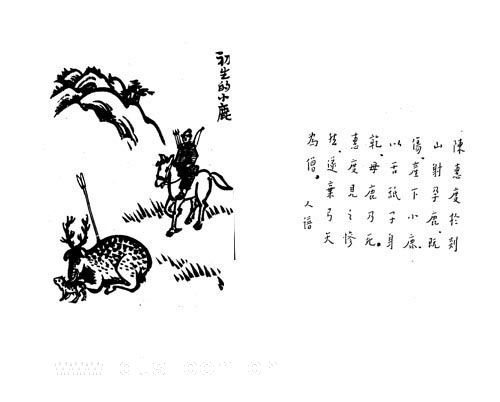 初生的小鹿
陳惠度於剡
山射孕鹿，既
傷，產下小鹿，
以舌舐子身
乾，母鹿乃死。
惠度見之慘
然，遂棄弓矢
為僧。
人譜